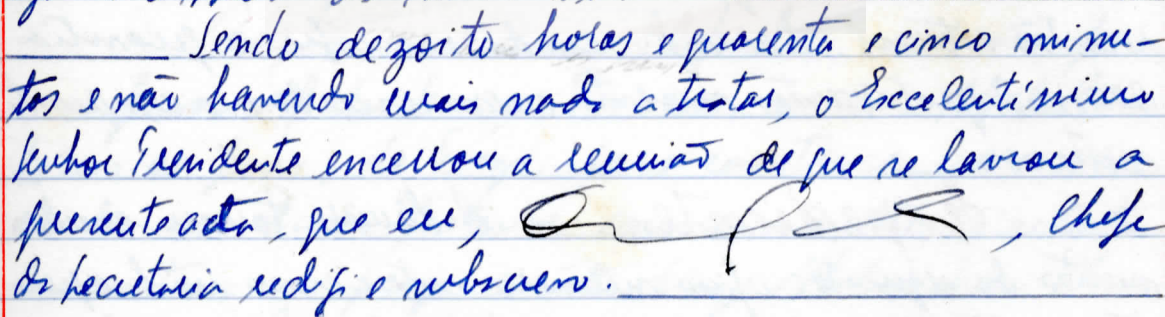 Sendo dezoito horas e quarenta e cinco minu-
tos e não havendo mais nada a tratar, o Excelentíssimo
Senhor Presidente encerrou a reunião de que se lavrou a
presente acta, que eu, , Chefe
da Secretaria redigi e subscrevo.